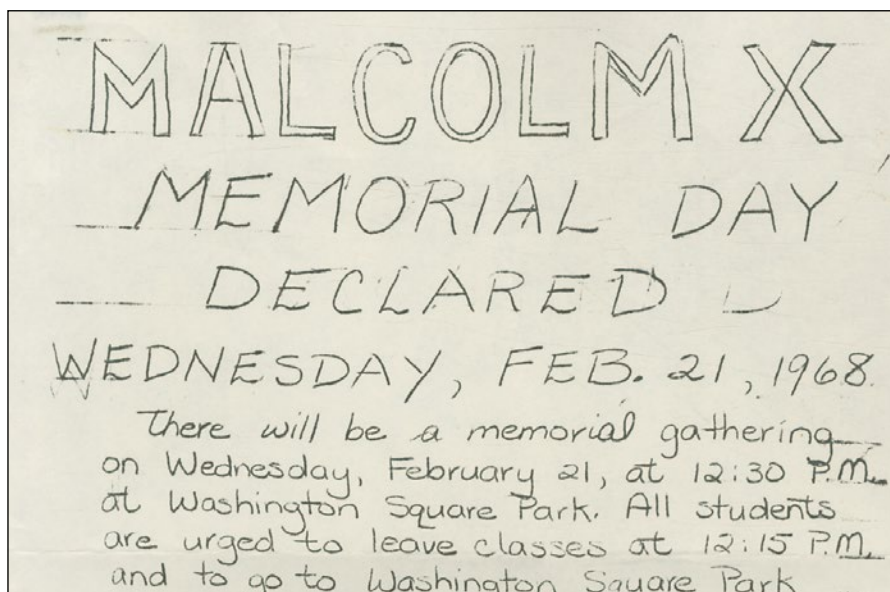 MALCOLM X
MEMORIAL DAY
DECLARED
WEDNESDAY, FEB. 21, 1968.
There will be a memorial gathering
on Wednesday, February 21, at 12:30 P.M.
at Washington Square Park. All students
are urged to leave classes at 12:15 P.M.
and to go to Washington Square Park